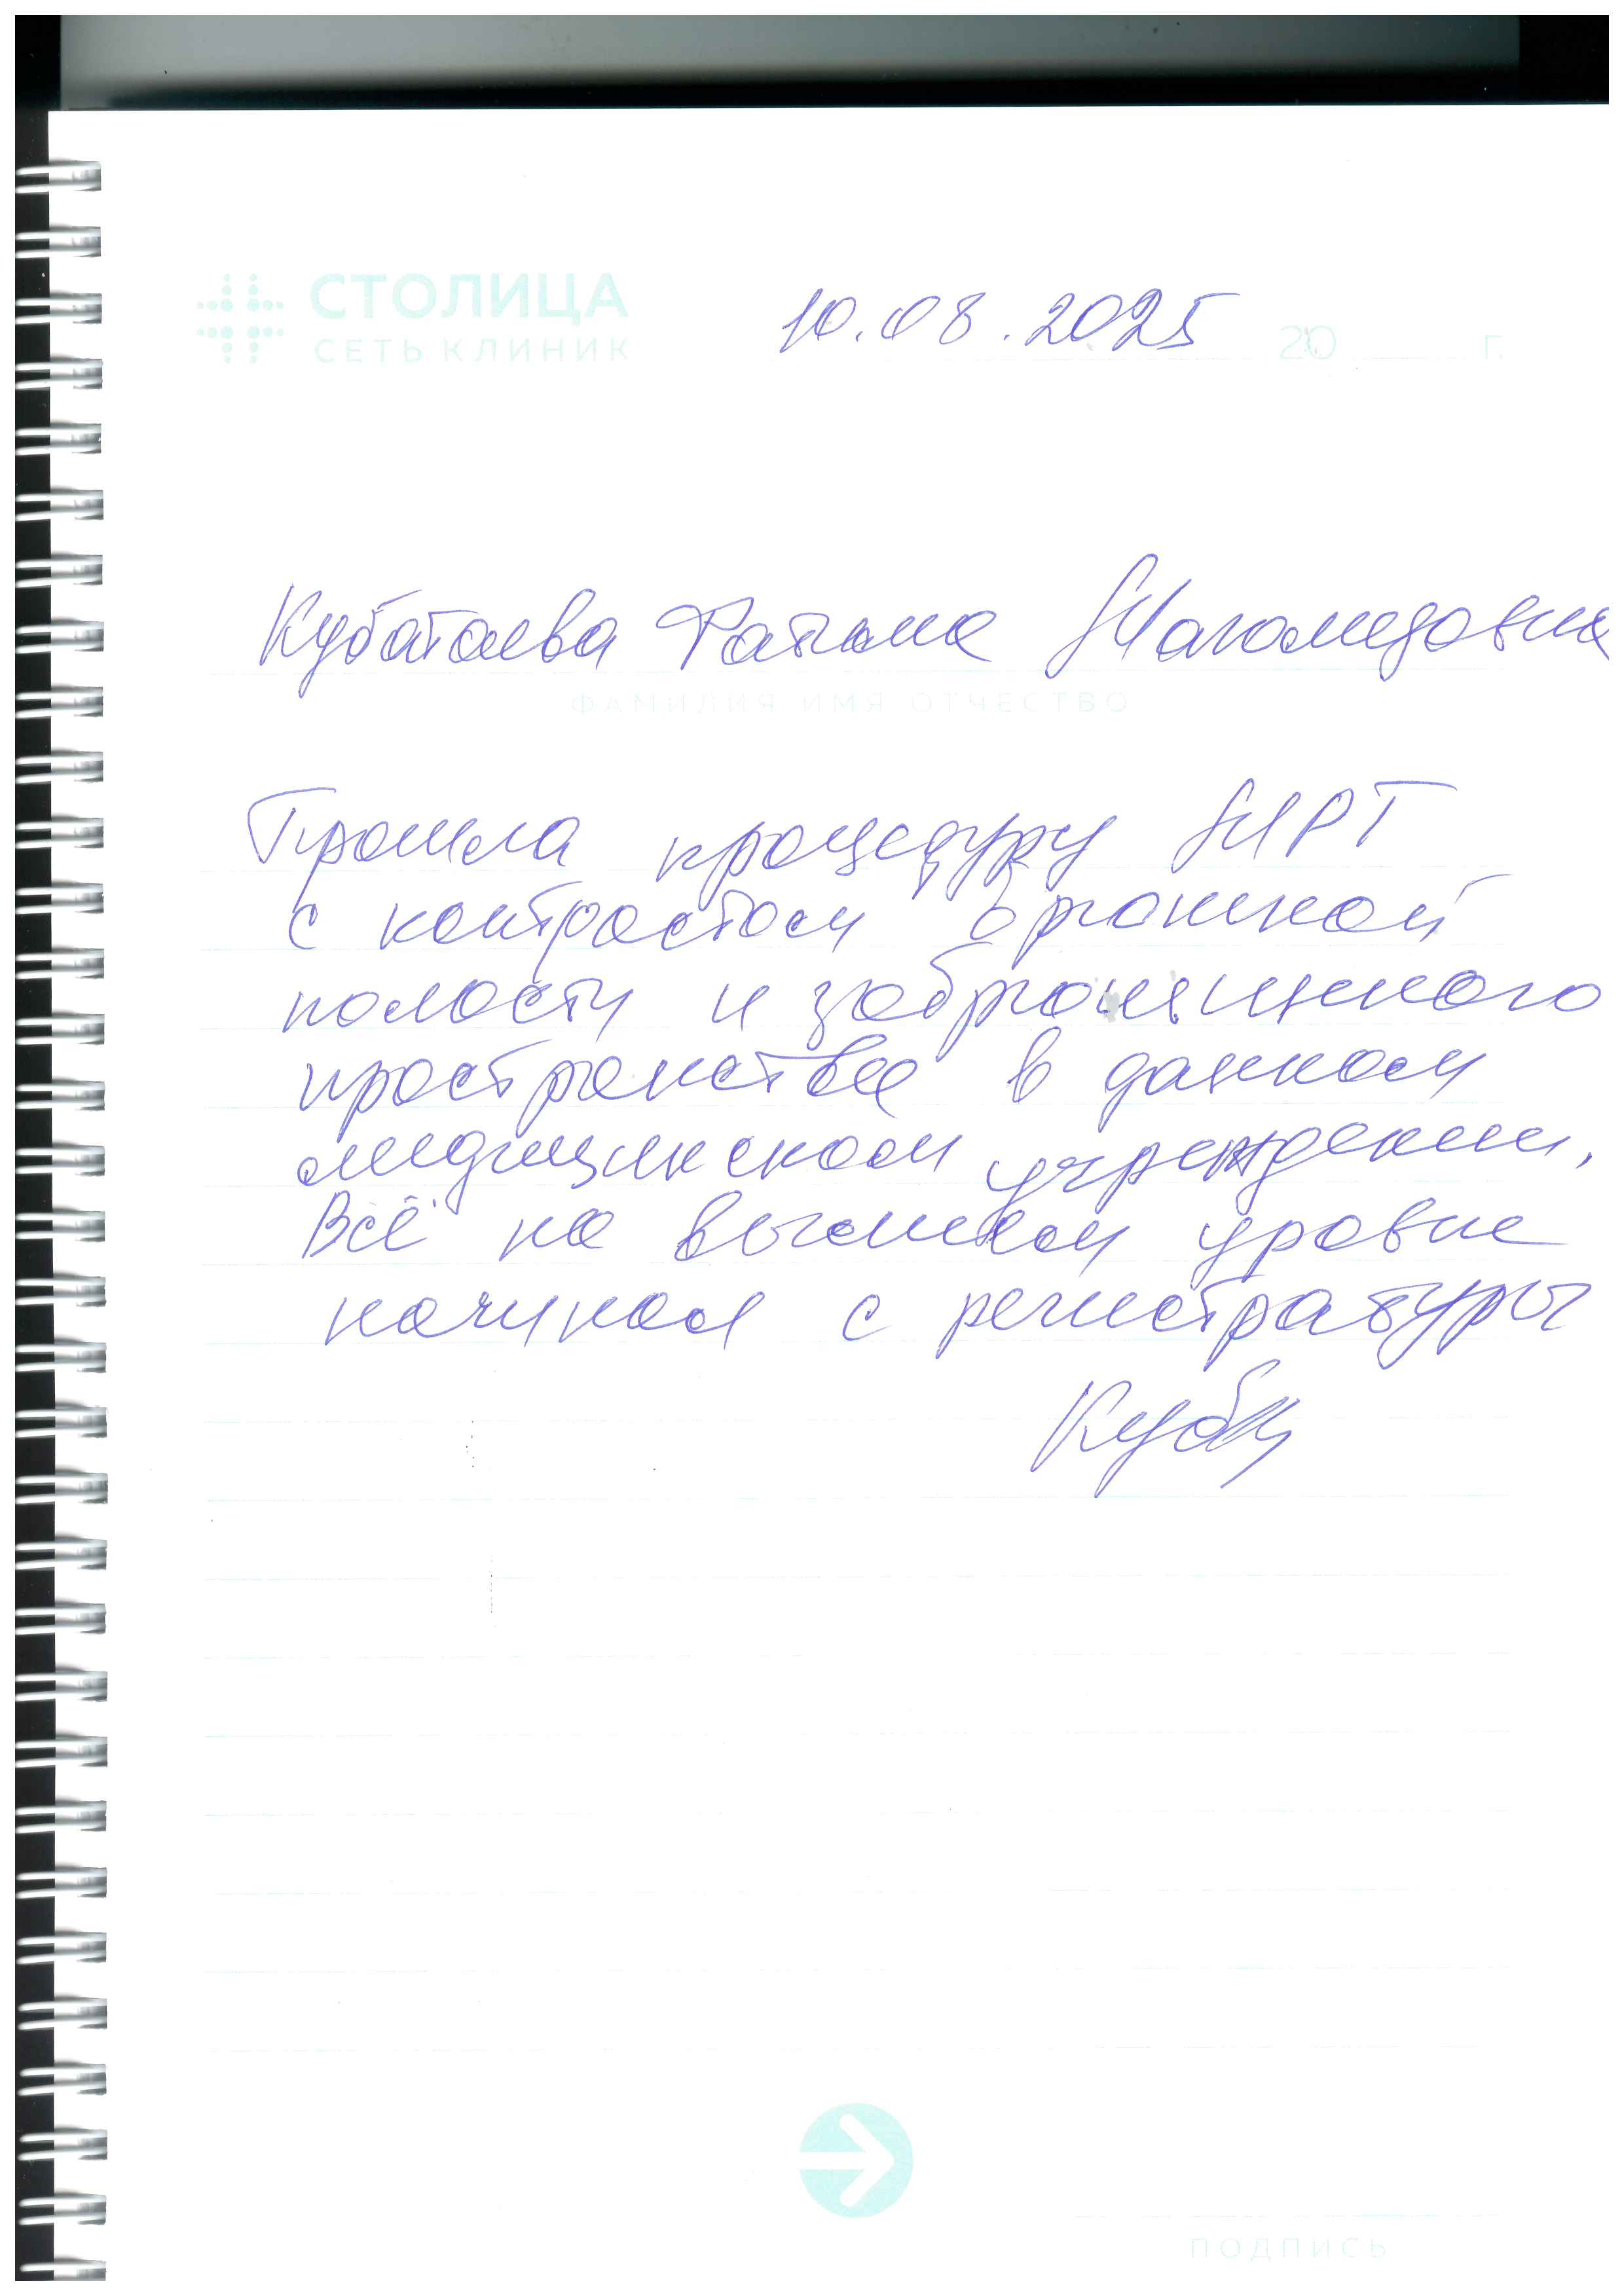 СТОЛИЦА
СЕТЬ КЛИНИК
10.08.2025 20 г.
Кубатаева Фатьма Магомедовна
ФАМИЛИЯ ИМЯ ОТЧЕСТВО
Прошла процедуру МРТ
с контрастом брюшной
полости и забрюшинного
пространства в данном
медицинском учреждении.
Всё на высшем уровне
начиная с регистратуры
ПОДПИСЬ